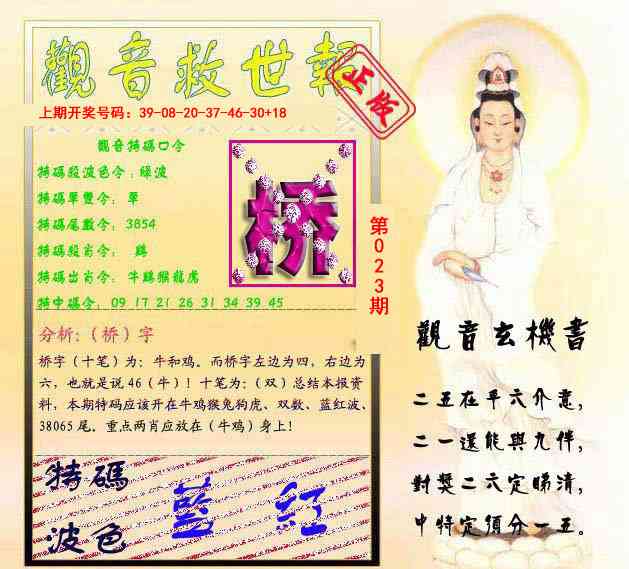 觀音救世報
正版
上期开奖号码：39-08-20-37-46-30+18
觀音特碼口令
特碼殺波色令：綠波
特碼單雙令：單
特碼尾數令：3854
特碼殺肖令：鷄
特碼出肖令：牛鷄猴龍虎
特中碼令：09 17 21 26 31 34 39 45
桥
第023期
分析：（桥）字
桥字（十笔）为：牛和鸡。而桥字左边为四，右边为
六，也就是说46（牛）！十笔为：（双）总结本报资
料，本期特码应该开在牛鸡猴兔狗虎、双数、蓝红波、
38065尾。重点两肖应放在（牛鸡）身上！
特碼
波色
藍紅
觀音玄機書
二五在平六介意，
二一還能與九伴，
對獎二六定睇清，
中特定須分一五。